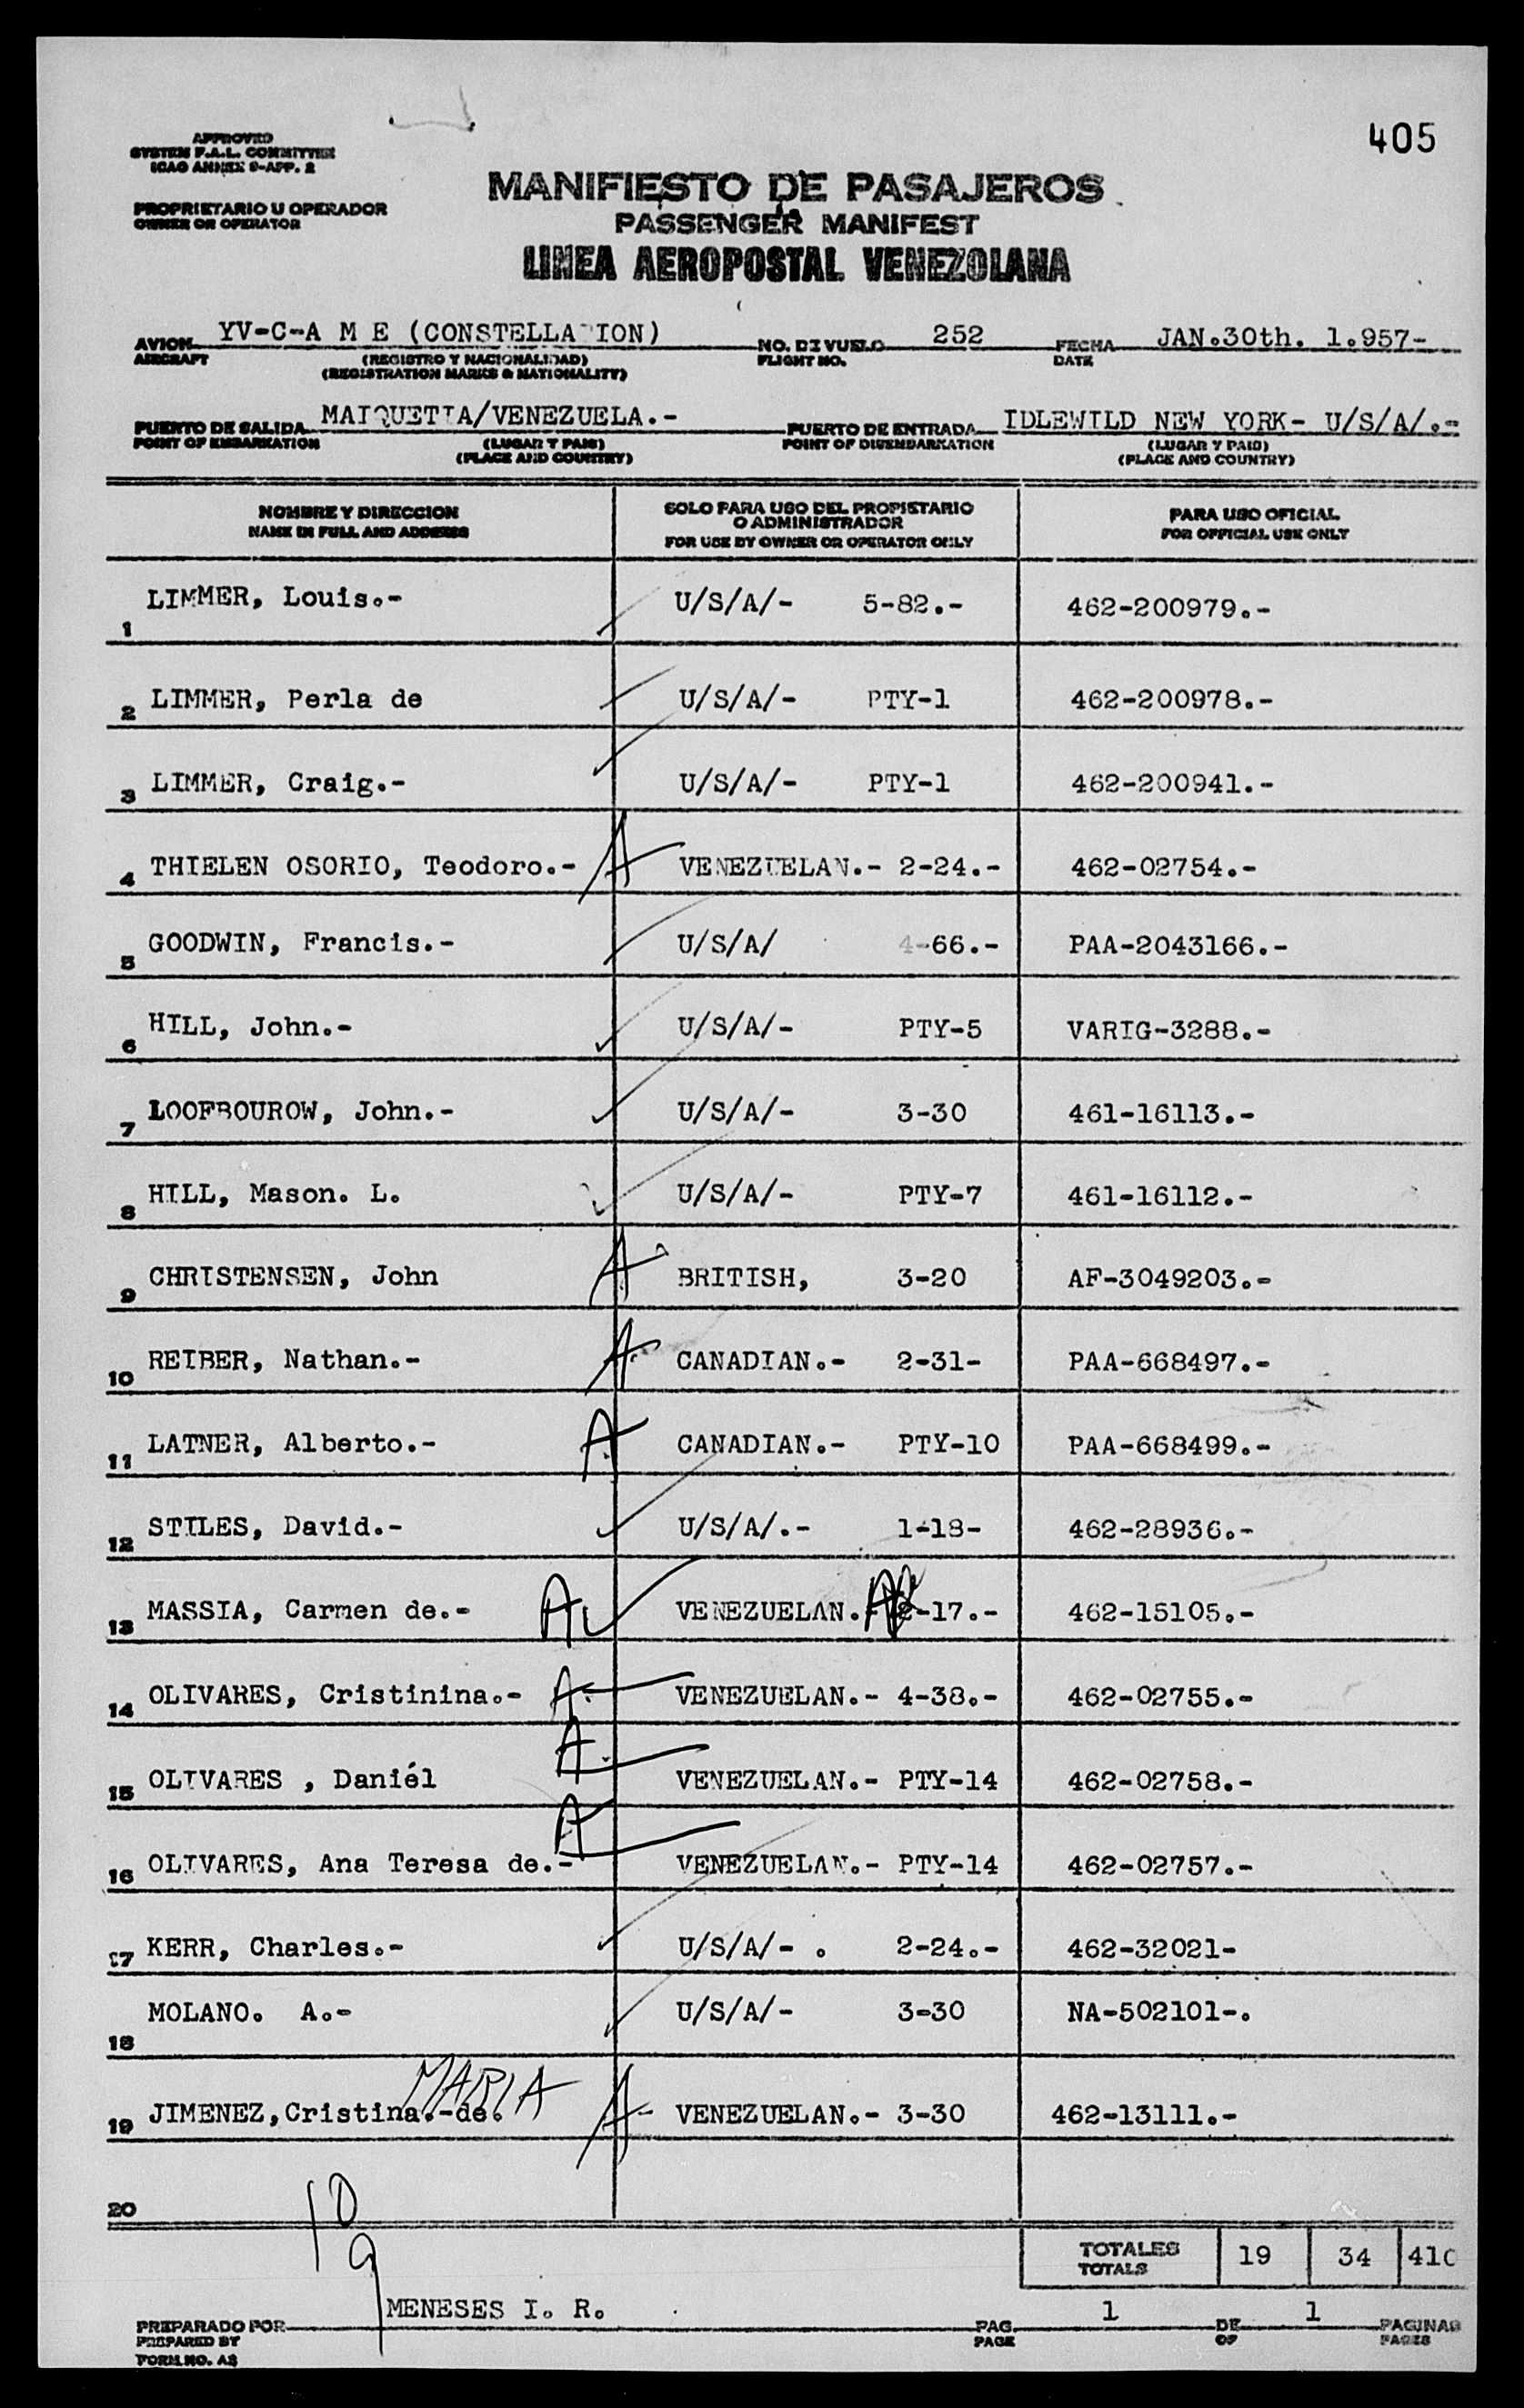 405
APPROVED
SYSTEM F.A.L. COMMITTEE
ICAO ANNEX 9-APP. 2
MANIFIESTO DE PASAJEROS
PROPRIETARIO U OPERADOR
OWNER OR OPERATOR
PASSENGER MANIFEST
LINEA AEROPOSTAL VENEZOLANA
AVION YV-C-A M E (CONSTELLATION) NO. DI VUELO 252 FECHA JAN.30th. 1.957-
AIRCRAFT (REGISTRO Y NACIONALIDAD) FLIGHT NO. DATE
(REGISTRATION MARKS & NATIONALITY)
PUERTO DE SALIDA MAIQUETIA/VENEZUELA.- PUERTO DE ENTRADA IDLEWILD NEW YORK- U/S/A/.-
POINT OF EMBARKATION (LUGAR Y PAIS) POINT OF DISEMBARKATION (LUGAR Y PAIS)
(PLACE AND COUNTRY) (PLACE AND COUNTRY)
NOMBRE Y DIRECCION SOLO PARA USO DEL PROPISTARIO PARA USO OFICIAL
O ADMINISTRADOR
NAME IN FULL AND ADDRESS FOR USE BY OWNER OR OPERATOR ONLY FOR OFFICIAL USE ONLY
1 LIMMER, Louis.- U/S/A/- 5-82.- 462-200979.-
2 LIMMER, Perla de U/S/A/- PTY-1 462-200978.-
3 LIMMER, Craig.- U/S/A/- PTY-1 462-200941.-
4 THIELEN OSORIO, Teodoro.- A VENEZUELAN.- 2-24.- 462-02754.-
5 GOODWIN, Francis.- U/S/A/ 4-66.- PAA-2043166.-
6 HILL, John.- U/S/A/- PTY-5 VARIG-3288.-
7 LOOFBOUROW, John.- U/S/A/- 3-30 461-16113.-
8 HILL, Mason. L. U/S/A/- PTY-7 461-16112.-
9 CHRISTENSEN, John A BRITISH, 3-20 AF-3049203.-
10 REIBER, Nathan.- A CANADIAN.- 2-31- PAA-668497.-
11 LATNER, Alberto.- A CANADIAN.- PTY-10 PAA-668499.-
12 STILES, David.- U/S/A/.- 1-18- 462-28936.-
13 MASSIA, Carmen de.- A VENEZUELAN.- 2-17.- 462-15105.-
14 OLIVARES, Cristinina.- A VENEZUELAN.- 4-38.- 462-02755.-
15 OLIVARES , Daniél A VENEZUELAN.- PTY-14 462-02758.-
16 OLIVARES, Ana Teresa de.- A VENEZUELAN.- PTY-14 462-02757.-
17 KERR, Charles.- U/S/A/- . 2-24.- 462-32021-
18 MOLANO. A.- U/S/A/- 3-30 NA-502101-.
MARIA
19 JIMENEZ,Cristina.-de. A VENEZUELAN.- 3-30 462-13111.-
20
10
9
TOTALES 19 34 410
TOTALS
PREPARADO POR MENESES I. R. PAG. 1 DE 1 PAGINAS
PREPARED BY PAGE OF PAGES
FORM NO. A3